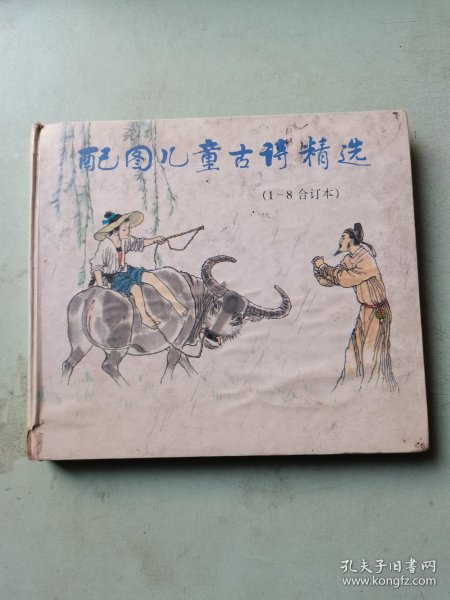 配图儿童古诗精选
(1-8合订本)
孔夫子旧书网
www.kongfz.com